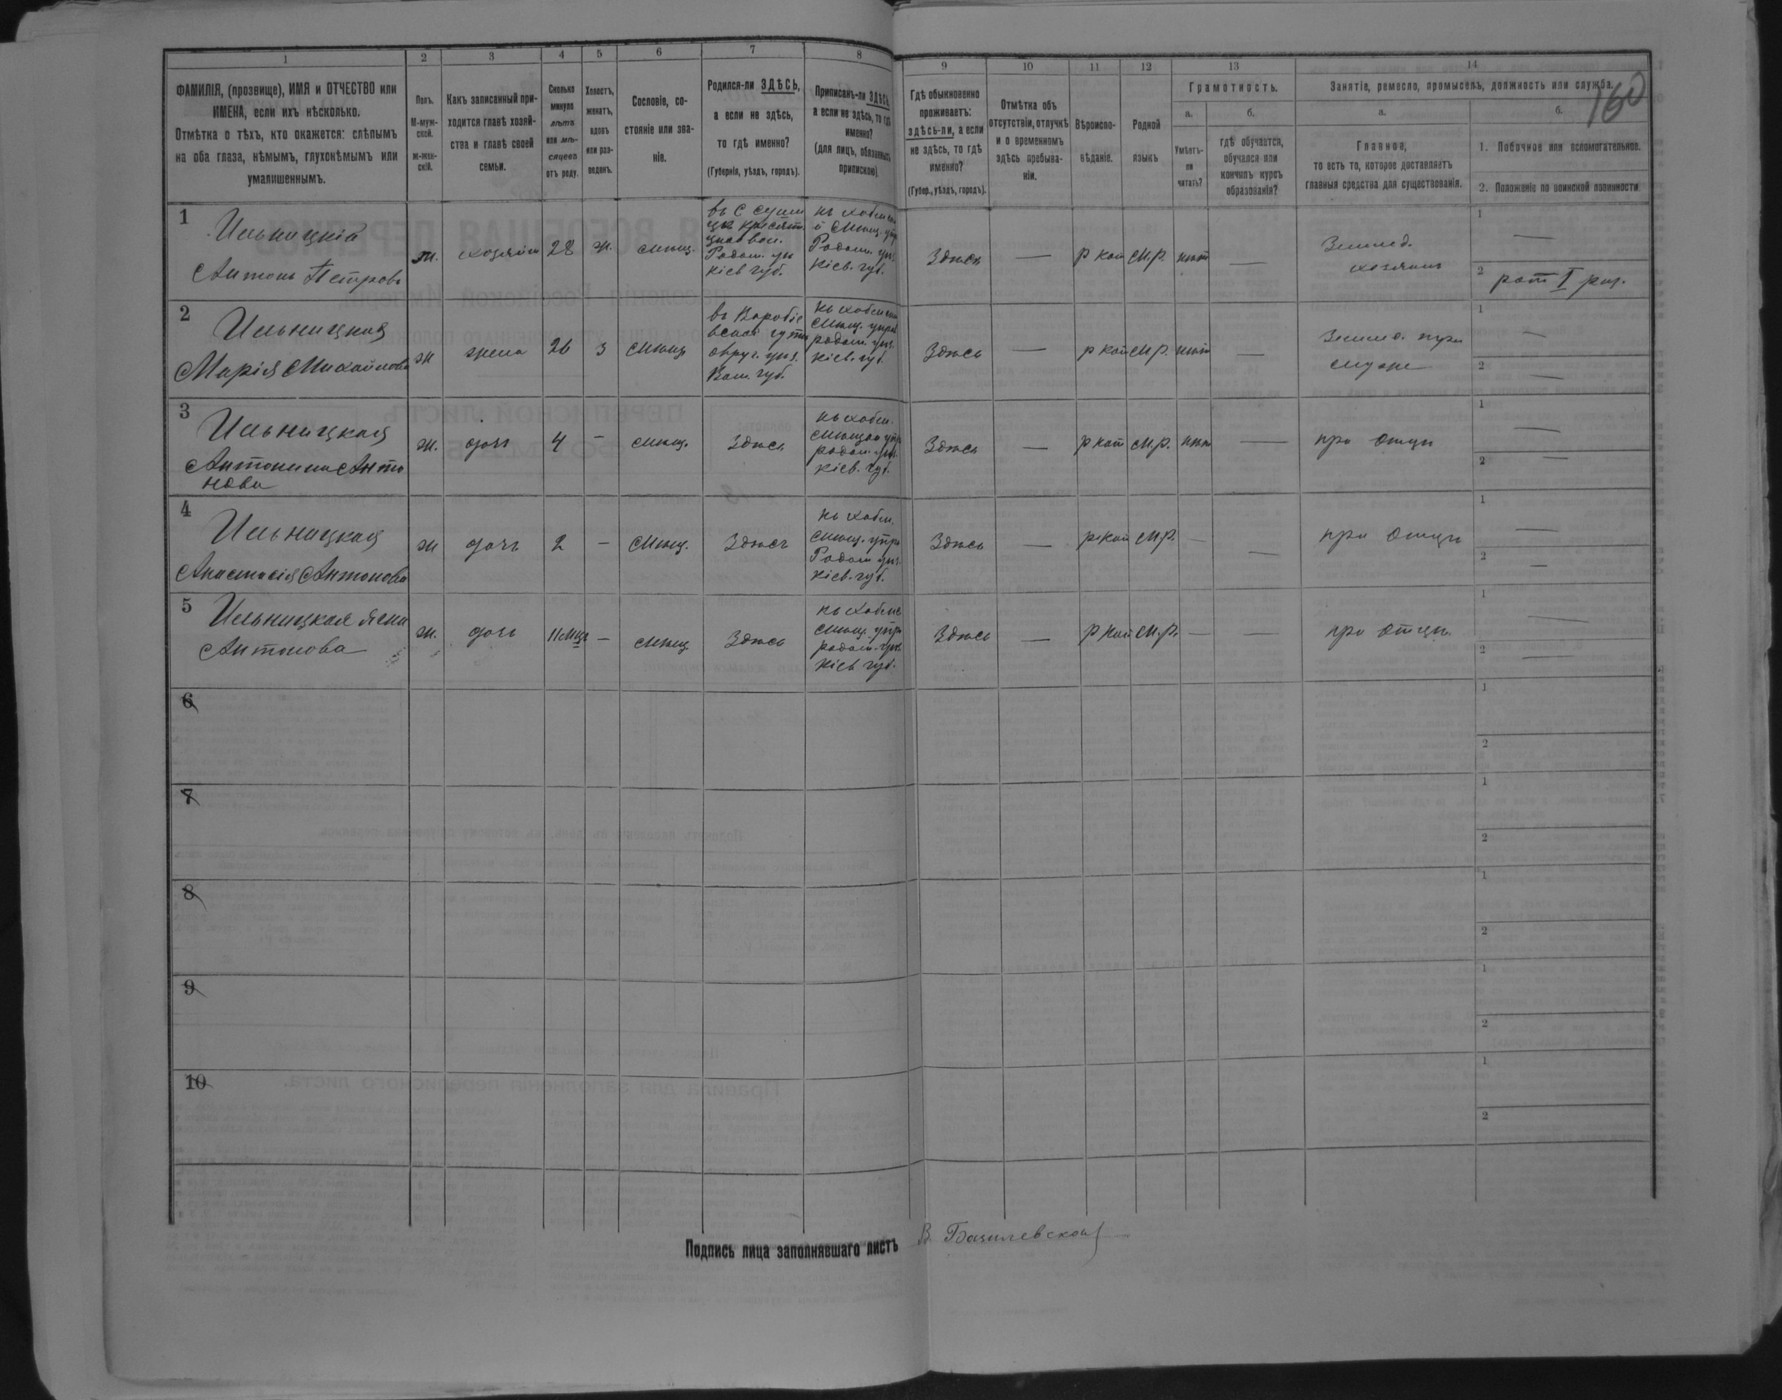 1 2 3 4 5 6 7 8 9 10 11 12 13 14
160
ФАМИЛІЯ, (прозвище), ИМЯ и ОТЧЕСТВО или
ИМЕНА, если ихъ нѣсколько.
Отмѣтка о тѣхъ, кто окажется: слѣпымъ
на оба глаза, нѣмымъ, глухонѣмымъ или
умалишеннымъ.
Полъ.
М-муж-
ской.
ж-жен-
скій.
Какъ записанный при-
ходится главѣ хозяй-
ства и главѣ своей
семьи.
Сколько
минуло
лѣтъ
или мѣ-
сяцевъ
отъ роду.
Холостъ,
женатъ,
вдовъ
или раз-
веденъ.
Сословіе, со-
стояніе или зва-
ніе.
Родился-ли ЗДѢСЬ,
а если не здѣсь,
то гдѣ именно?
(Губернія, уѣздъ, городъ).
Приписанъ-ли ЗДѢСЬ,
а если не здѣсь, то гдѣ
именно?
(для лицъ, обязанныхъ
припискою)
Гдѣ обыкновенно
проживаетъ:
здѣсь-ли, а если
не здѣсь, то гдѣ
именно?
(Губер., уѣздъ, городъ).
Отмѣтка объ
отсутствіи, отлучкѣ
и о временномъ
здѣсь пребыва-
ніи.
Вѣроиспо-
вѣданіе.
Родной
языкъ
Грамотность.
а.
Умѣетъ-
ли
читать?
б.
гдѣ обучается,
обучался или
кончилъ курсъ
образованія?
Занятіе, ремесло, промыселъ, должность или служба.
а.
Главное,
то есть то, которое доставляетъ
главныя средства для существованія.
б.
1. Побочное или вспомогательное.
2. Положеніе по воинской повинности
1
Ильницкій
Антонъ Петровъ
м. хозяинъ 28 ж. мѣщ.
Радом. уѣз
Кіев губ.
Радом. уѣз.
Кіев. губ.
Здѣсь — р кат м.р нѣт —
Землед.
хозяинъ
1 —
2 рат I раз.
2
Ильницкая
Марія Михайлова
ж жена 26 з мѣщ
Вол. губ.
мѣщ. упра
радом уѣз.
Кіев. губ
Здѣсь — р кат м.р. нѣт —
Землед. при
мужѣ
1 —
2 —
3
Ильницкая
Антонина Анто
нова
ж. дочь 4 — мѣщ. Здѣсь
радом. уѣз.
Кіев. губ.
Здѣсь — р кат м.р. нѣт —
при отцѣ
1 —
2 —
4
Ильницкая
Анастасія Антонова
ж дочь 2 — мѣщ. Здѣсь
мѣщ. упра
Радом уѣз.
Кіев. губ.
Здѣсь — р кат м.р. — —
при отцѣ
1 —
2 —
5
Ильницкая
Антонова
ж. дочь 11 мѣц — мѣщ Здѣсь
мѣщ. упра
радом. уѣз
Кіев губ.
Здѣсь — р кат м.р. — —
при отцѣ.
1 —
2 —
6
1
2
7
1
2
8
1
2
9
1
2
10
1
2
Подпись лица заполнявшаго листъ